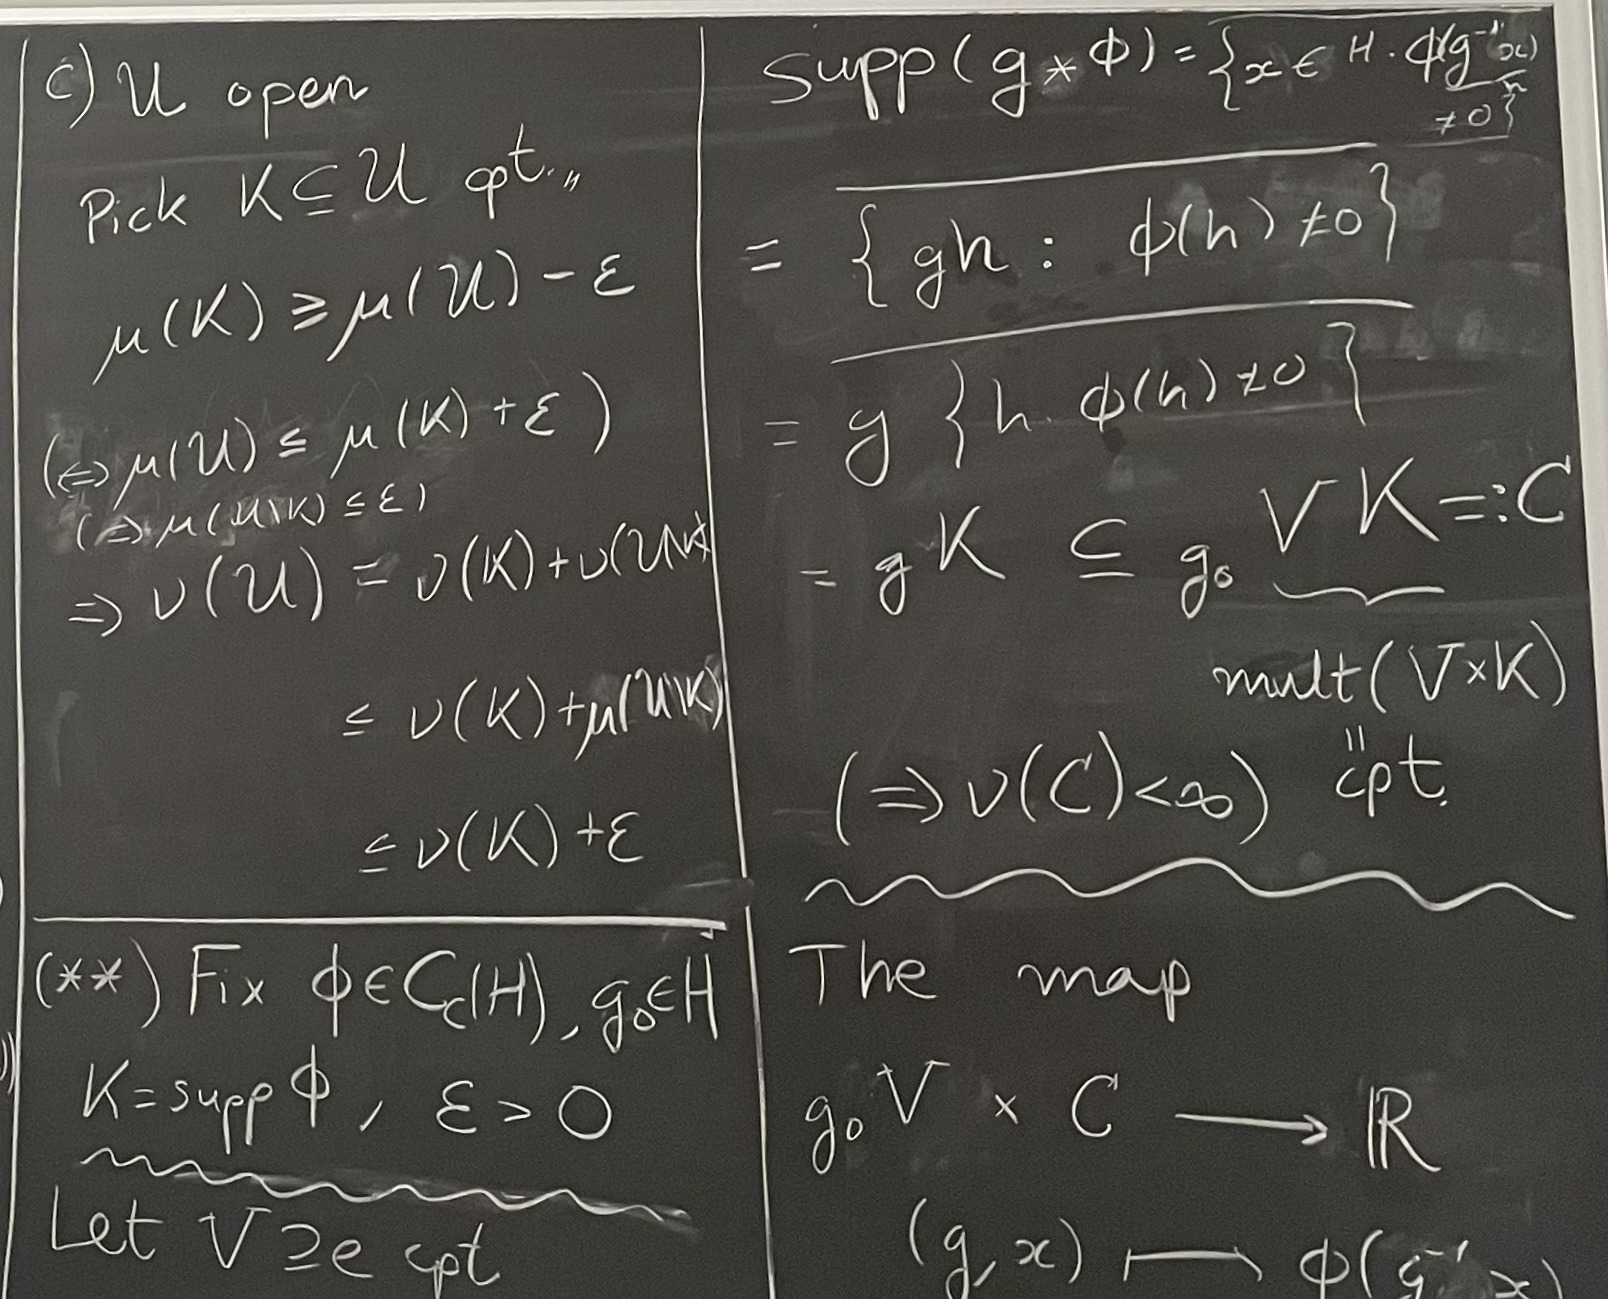 c) U open
Pick K ⊆ U cpt.,,
μ(K) ≥ μ(U) - ε
(⇔ μ(U) ≤ μ(K) + ε)
(⇒ μ(U\K) ≤ ε)
⇒ ν(U) = ν(K) + ν(U\K)
≤ ν(K) + μ(U\K)
≤ ν(K) + ε
(**) Fix ϕ ∈ Cc(H), g₀ ∈ H
K = supp ϕ, ε > 0
Let V ∋ e cpt
Supp(g * ϕ) = {x ∈ H . ϕ(g⁻¹x)
≠ 0}
= {gh : ϕ(h) ≠ 0}
= g {h. ϕ(h) ≠ 0}
= gK ⊆ g₀ V K =: C
mult(V × K)
"
cpt.
(⇒ ν(C) < ∞)
The map
g₀V × C → ℝ
(g, x) ↦ ϕ(g⁻¹x)